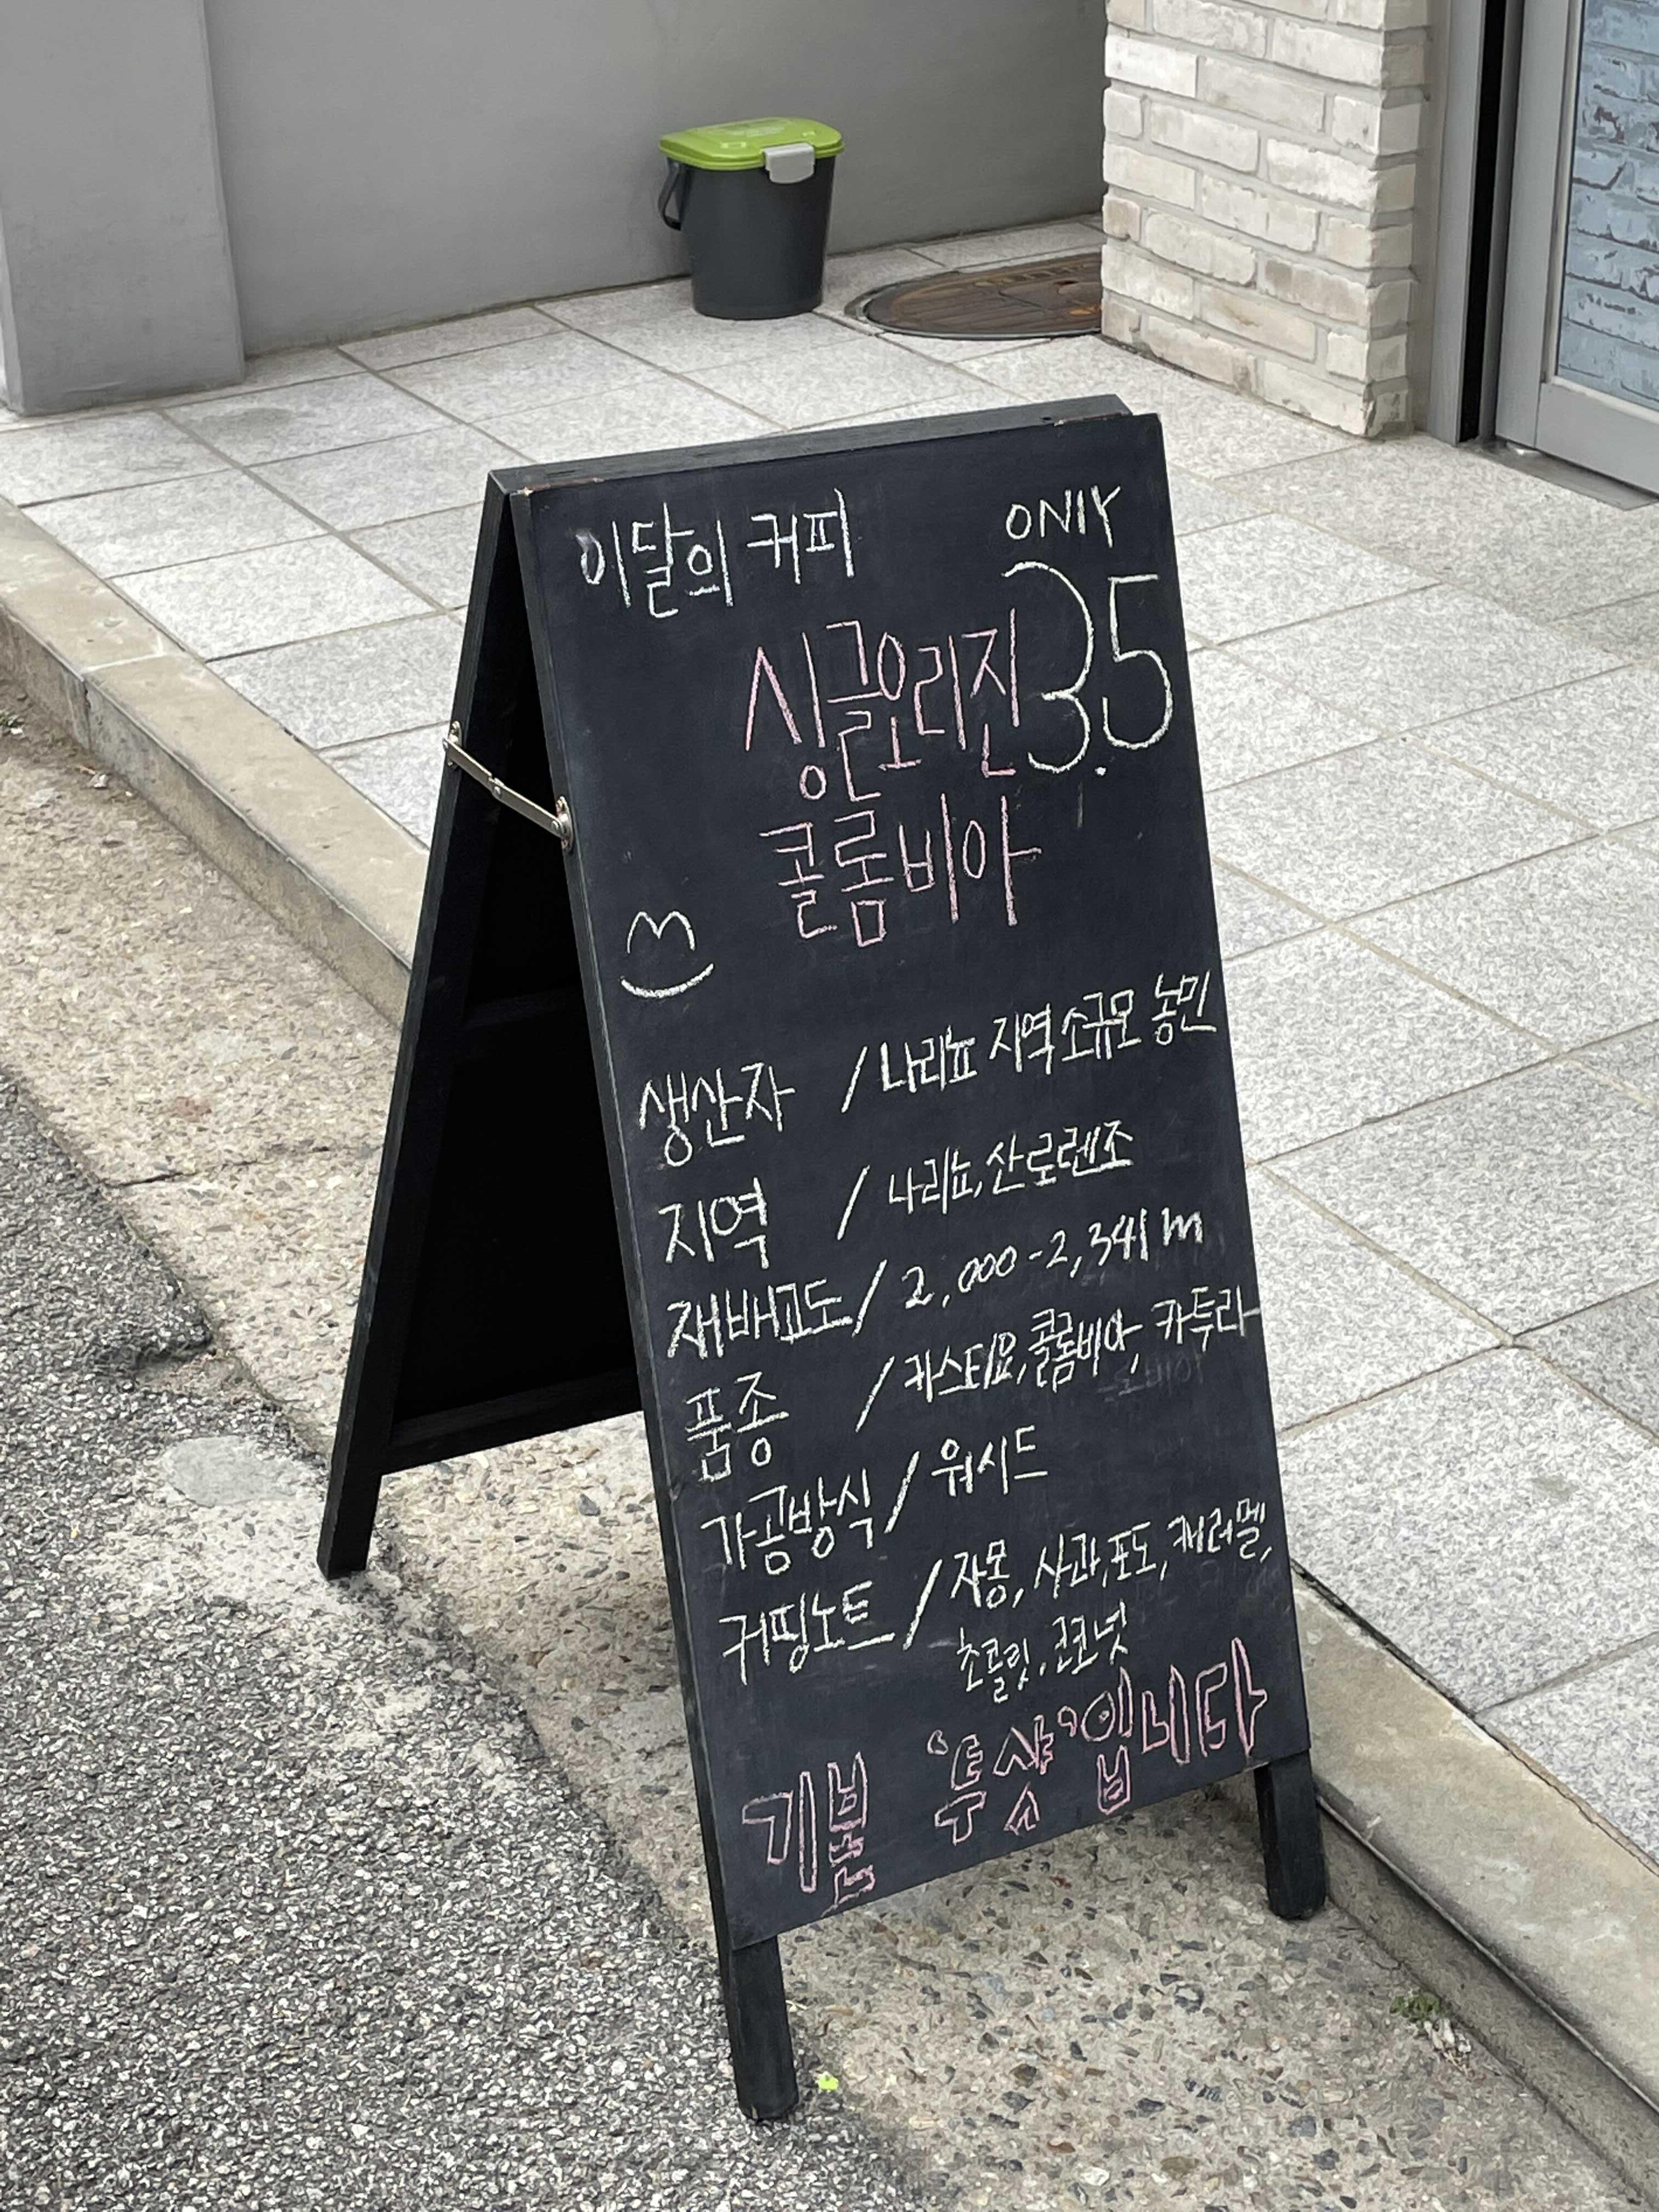 이달의 커피
ONlY
3.5
싱글오리진
콜롬비아
생산자 / 나리뇨 지역 소규모 농민
지역 / 나리뇨, 산로렌조
재배고도 / 2,000-2,341m
품종 / 카스티요, 콜롬비아, 카투라
가공방식 / 워시드
커핑노트 / 자몽, 사과, 포도, 캐러멜,
초콜릿, 코코넛
기본 '투샷' 입니다